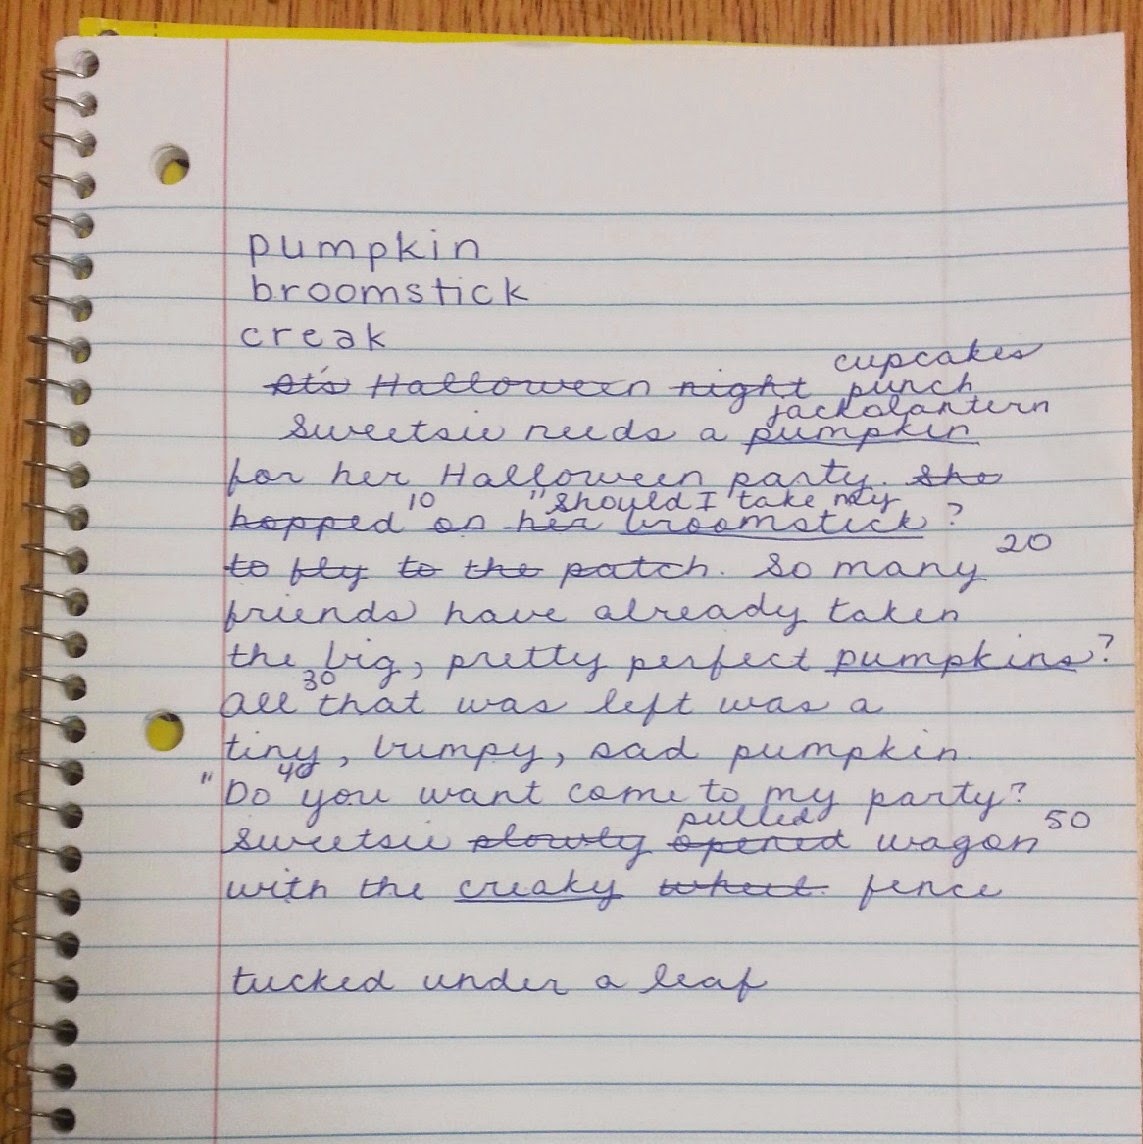 pumpkin
broomstick
creak
cupcakes
It's Halloween night punch
jackolantern
Sweetsie needs a pumpkin
for her Halloween party. She
10 "Should I take my
hopped on her broomstick?
20
to fly to the patch. So many
friends have already taken
the big, pretty perfect pumpkins?
30
All that was left was a
tiny, bumpy, sad pumpkin.
40
"Do you want come to my party?
pulled 50
Sweetsie slowly opened wagon
with the creaky wheel. fence
tucked under a leaf